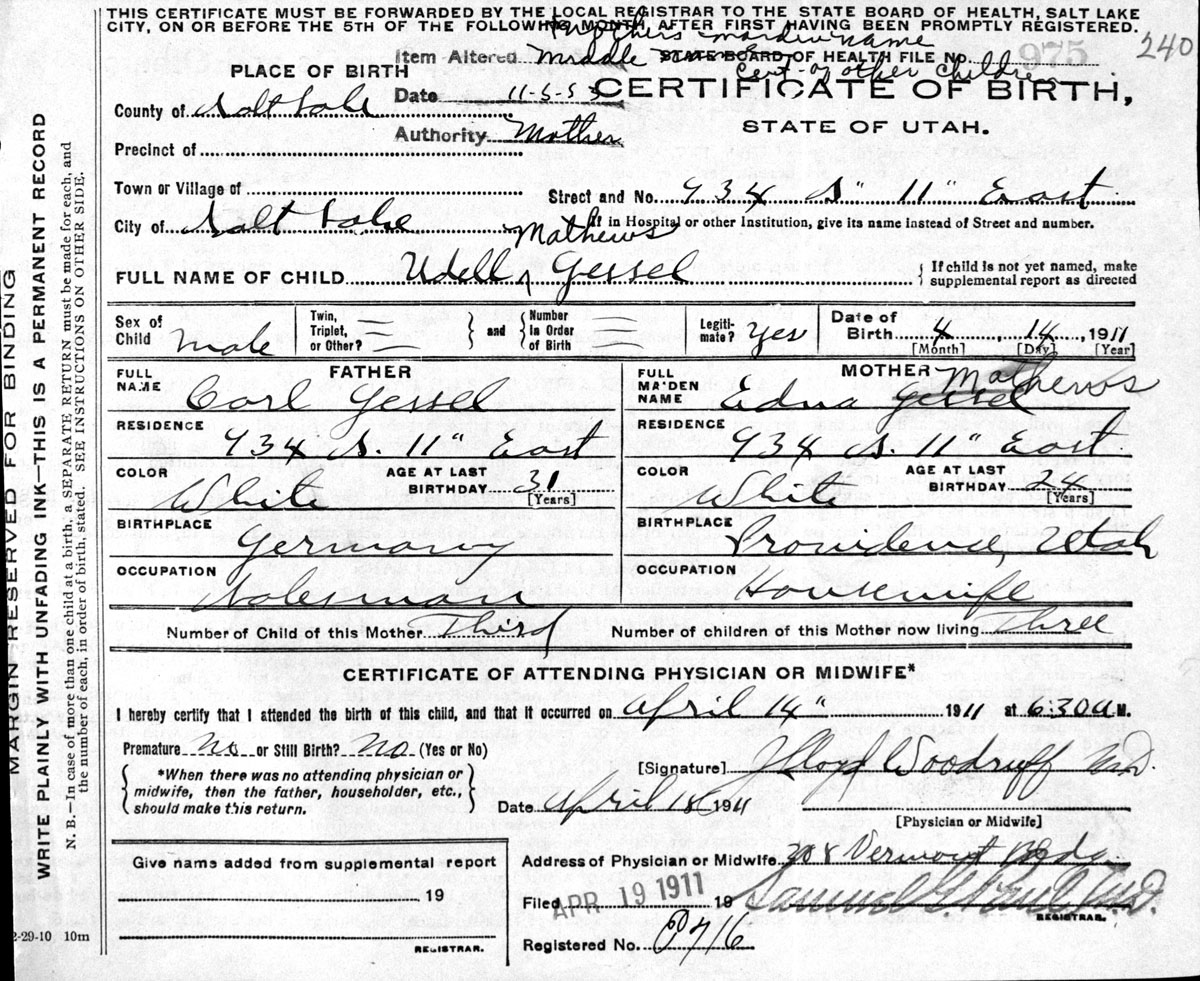 THIS CERTIFICATE MUST BE FORWARDED BY THE LOCAL REGISTRAR TO THE STATE BOARD OF HEALTH, SALT LAKE
CITY, ON OR BEFORE THE 5TH OF THE FOLLOWING MONTH, AFTER FIRST HAVING BEEN PROMPTLY REGISTERED.
240
mothers maiden name
Item Altered Middle
STATE BOARD OF HEALTH FILE NO. 975
Cert. of other children
PLACE OF BIRTH
Date 11-5-53
CERTIFICATE OF BIRTH,
County of Salt Lake
Authority Mother
STATE OF UTAH.
Precinct of
Town or Village of
Street and No. 934 S. 11" East
City of Salt Lake
If in Hospital or other Institution, give its name instead of Street and number.
Mathews
FULL NAME OF CHILD Udell Gessel
If child is not yet named, make
supplemental report as directed
Sex of Child male
Twin, Triplet, or Other?
and
Number In Order of Birth
Legitimate? Yes
Date of Birth 4 14, 1911
[Month] [Day] [Year]
FATHER
FULL NAME Carl Gessel
RESIDENCE 934 S. 11" East
COLOR White AGE AT LAST BIRTHDAY 31 [Years]
BIRTHPLACE Germany
OCCUPATION Salesman
MOTHER
FULL MAIDEN NAME Edna Gessel Mathews
RESIDENCE 934 S. 11" East
COLOR White AGE AT LAST BIRTHDAY 24 [Years]
BIRTHPLACE Providence, Utah
OCCUPATION Housewife
Number of Child of this Mother Third Number of children of this Mother now living Three
CERTIFICATE OF ATTENDING PHYSICIAN OR MIDWIFE*
I hereby certify that I attended the birth of this child, and that it occurred on April 14" 1911 at 6:30 A M.
Premature No or Still Birth? No (Yes or No)
*When there was no attending physician or
midwife, then the father, householder, etc.,
should make this return.
[Signature] J Lloyd Woodruff M.D.
Date April 18 1911
[Physician or Midwife]
Give name added from supplemental report
19
REGISTRAR.
Address of Physician or Midwife 308 Vermont Bldg
Filed APR 19 1911 19
Samuel G. Paul M.D.
REGISTRAR.
Registered No. 716
2-29-10 10m
MARGIN RESERVED FOR BINDING
WRITE PLAINLY WITH UNFADING INK—THIS IS A PERMANENT RECORD
N. B.—In case of more than one child at a birth, a SEPARATE RETURN must be made for each, and
the number of each, in order of birth, stated. SEE INSTRUCTIONS ON OTHER SIDE.